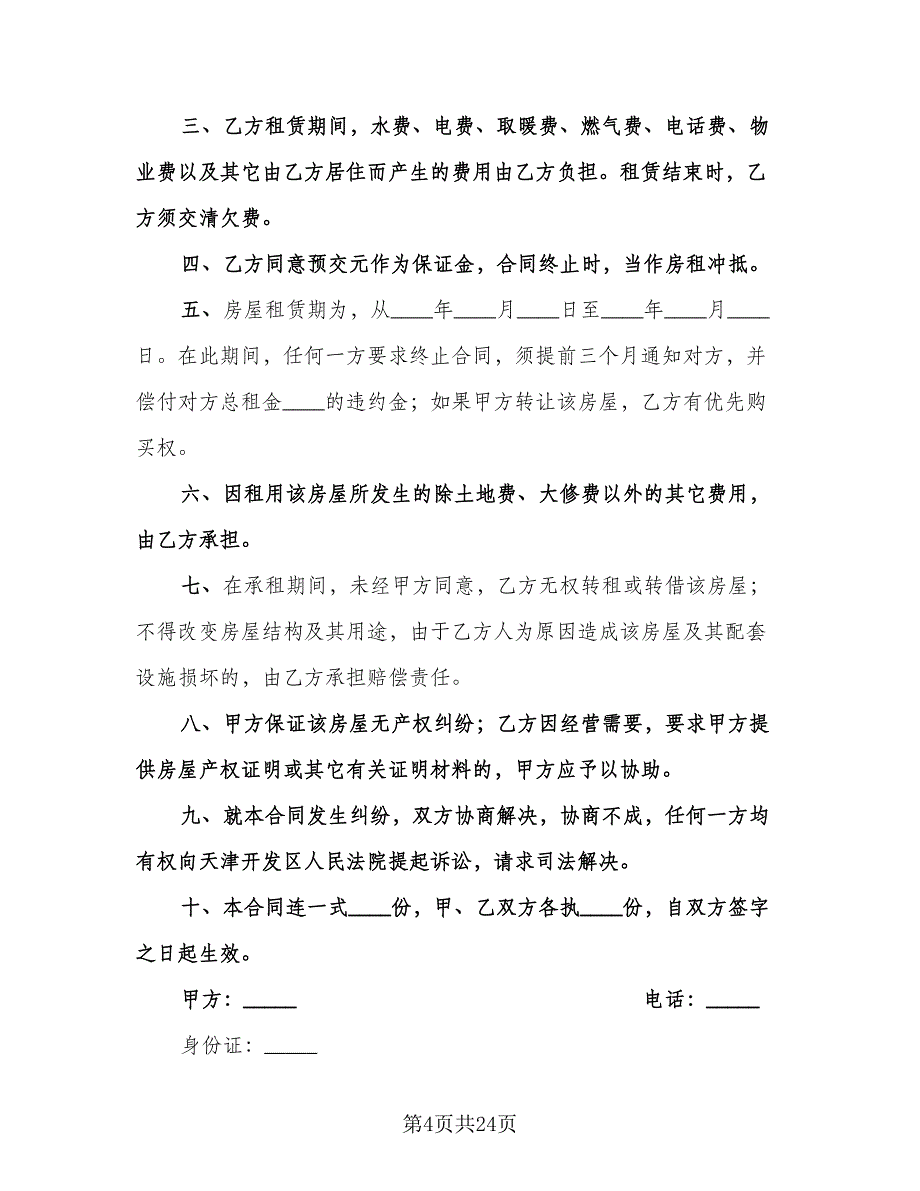 三、乙方租赁期间，水费、电费、取暖费、燃气费、电话费、物
业费以及其它由乙方居住而产生的费用由乙方负担。租赁结束时，乙
方须交清欠费。
四、乙方同意预交元作为保证金，合同终止时，当作房租冲抵。
五、房屋租赁期为，从____年____月____日至____年____月____
日。在此期间，任何一方要求终止合同，须提前三个月通知对方，并
偿付对方总租金____的违约金；如果甲方转让该房屋，乙方有优先购
买权。
六、因租用该房屋所发生的除土地费、大修费以外的其它费用，
由乙方承担。
七、在承租期间，未经甲方同意，乙方无权转租或转借该房屋；
不得改变房屋结构及其用途，由于乙方人为原因造成该房屋及其配套
设施损坏的，由乙方承担赔偿责任。
八、甲方保证该房屋无产权纠纷；乙方因经营需要，要求甲方提
供房屋产权证明或其它有关证明材料的，甲方应予以协助。
九、就本合同发生纠纷，双方协商解决，协商不成，任何一方均
有权向天津开发区人民法院提起诉讼，请求司法解决。
十、本合同连一式____份，甲、乙双方各执____份，自双方签字
之日起生效。
甲方：_____ 电话：_____
身份证：_____
第4页共24页